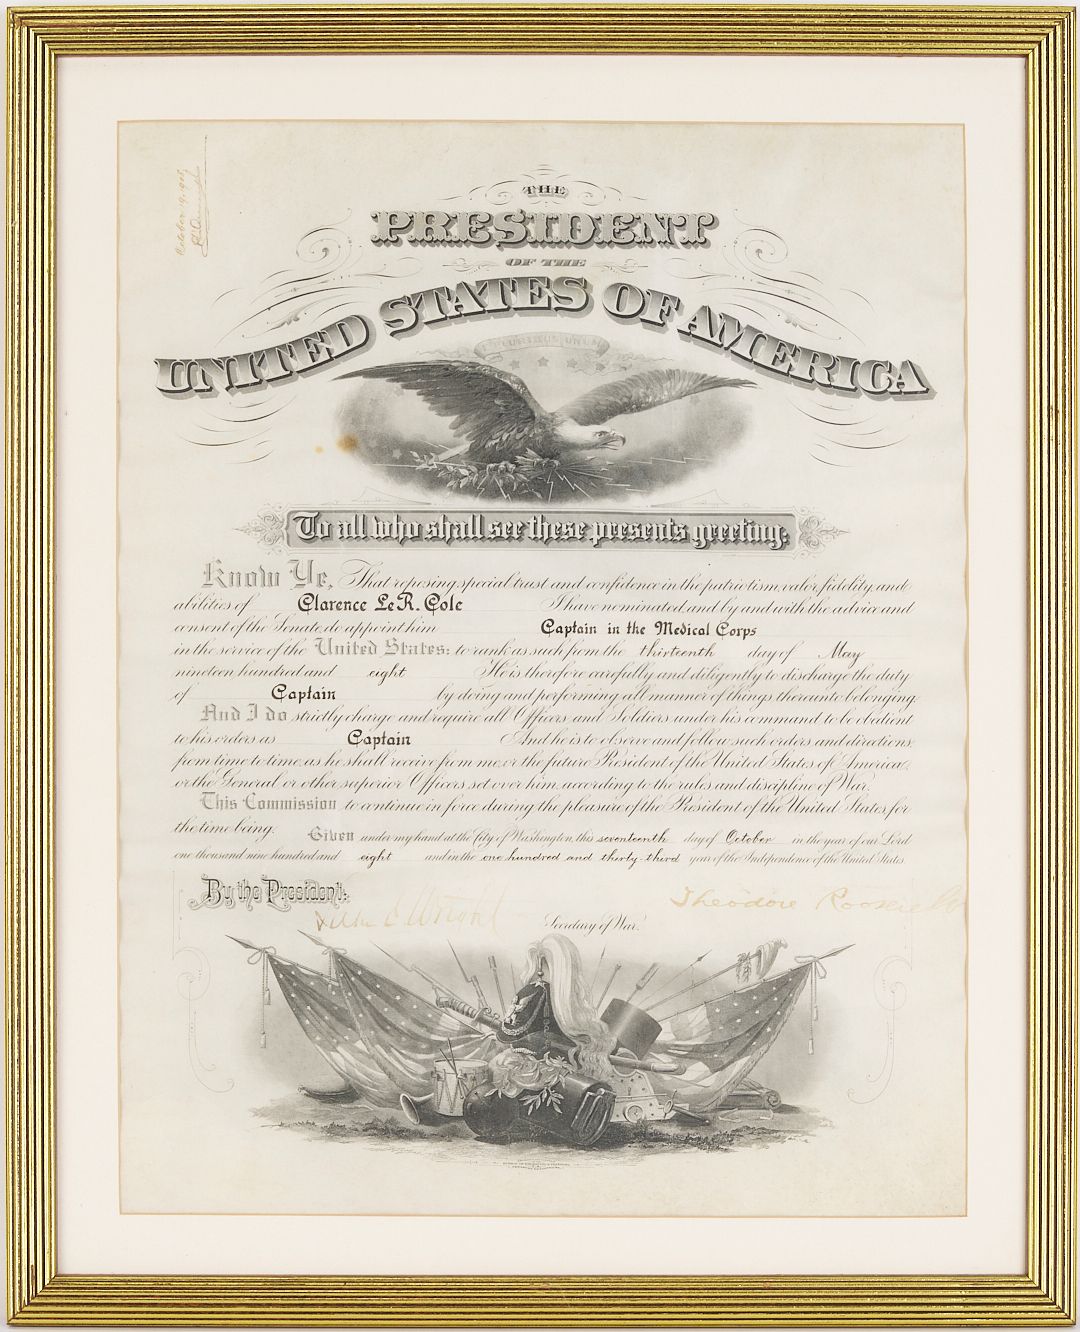 October 19, 1908,
THE
PRESIDENT
OF THE
UNITED STATES OF AMERICA
E PLURIBUS UNUM
To all who shall see these presents greeting:
Know Ye, That reposing special trust and confidence in the patriotism, valor, fidelity, and
abilities of Clarence Le R. Cole I have nominated and by and with the advice and
consent of the Senate do appoint him Captain in the Medical Corps
in the service of the United States: to rank as such from the thirteenth day of May
nineteen hundred and eight He is therefore carefully and diligently to discharge the duty
of Captain by doing and performing all manner of things thereunto belonging.
And I do strictly charge and require all Officers and Soldiers under his command to be obedient
to his orders as Captain And he is to observe and follow such orders and directions
from time to time, as he shall receive from me, or the future President of the United States of America,
or the General or other superior Officers set over him, according to the rules and discipline of War.
This Commission to continue in force during the pleasure of the President of the United States, for
the time being.
Given under my hand at the City of Washington, this seventeenth day of October in the year of our Lord
one thousand nine hundred and eight and in the one hundred and thirty-third year of the Independence of the United States.
By the President:
Theodore Roosevelt
Luke E Wright
Secretary of War.